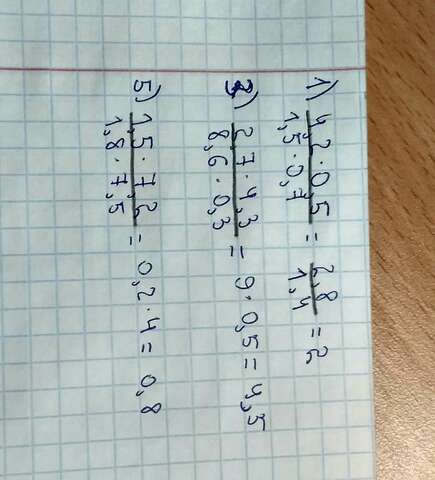 1) 4,2 · 0,5 / 1,5 · 0,7 = 2,8 / 1,4 = 2
3) 2,7 · 4,3 / 8,6 · 0,3 = 9 · 0,5 = 4,5
5) 1,5 · 7,2 / 1,8 · 7,5 = 0,2 · 4 = 0,8